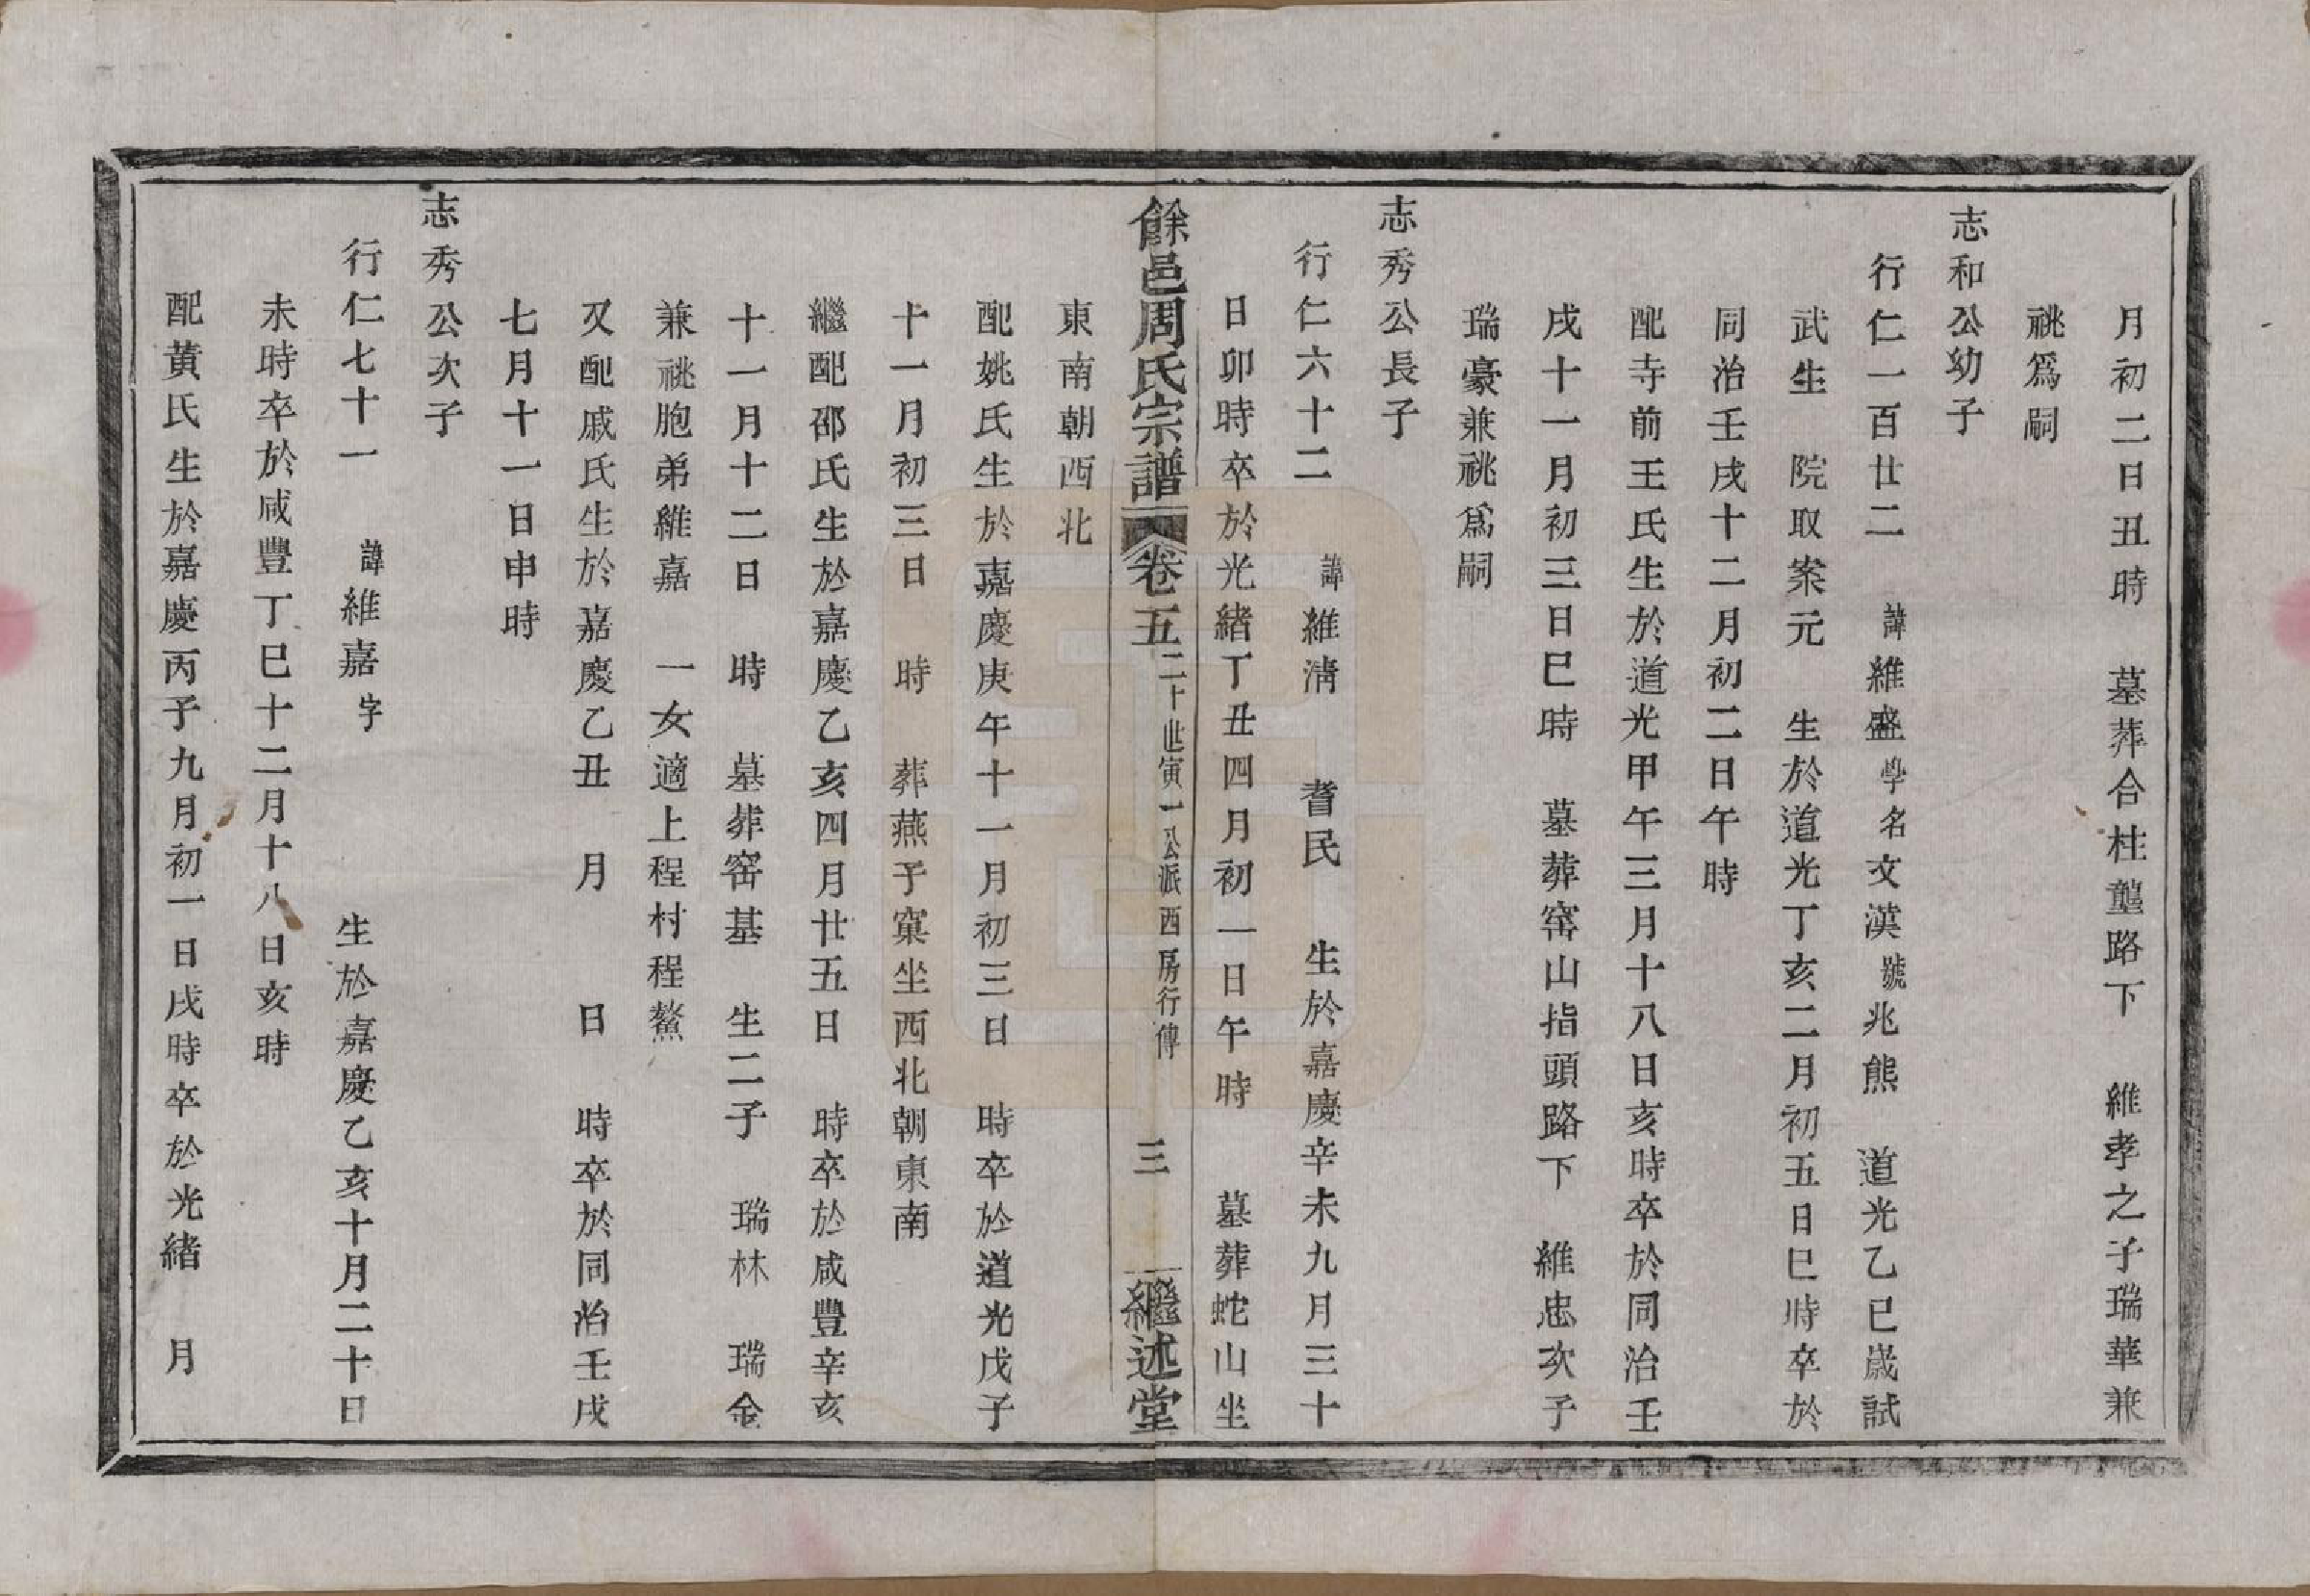 月初二日丑時　墓葬合柱壟路下　維孝之子瑞華兼
祧爲嗣
志和公幼子
行仁一百廿二　諱維盛學名文漢號兆熊　道光乙巳歲試
武生　院取案元　生於道光丁亥二月初五日巳時卒於
同治壬戌十二月初二日午時
配寺前王氏生於道光甲午三月十八日亥時卒於同治壬
戌十一月初三日巳時　墓葬窰山指頭路下　維忠次子
瑞豪兼祧爲嗣
志秀公長子
行仁六十二　諱維淸　耆民　生於嘉慶辛未九月三十
日卯時卒於光緒丁丑四月初一日午時　墓葬蛇山坐
餘邑周氏宗譜　卷五　二十世寅一公派西房行傳　三　繼述堂
東南朝西北
配姚氏生於嘉慶庚午十一月初三日　時卒於道光戊子
十一月初三日　時　葬燕子窠坐西北朝東南
繼配邵氏生於嘉慶乙亥四月廿五日　時卒於咸豐辛亥
十一月十二日　時　墓葬窑基　生二子　瑞林　瑞金
兼祧胞弟維嘉　一女適上程村程鰲
又配戚氏生於嘉慶乙丑　月　日　時卒於同治壬戌
七月十一日申時
志秀公次子
行仁七十一　諱維嘉字　生於嘉慶乙亥十月二十日
未時卒於咸豐丁巳十二月十八日亥時
配黃氏生於嘉慶丙子九月初一日戌時卒於光緒　月